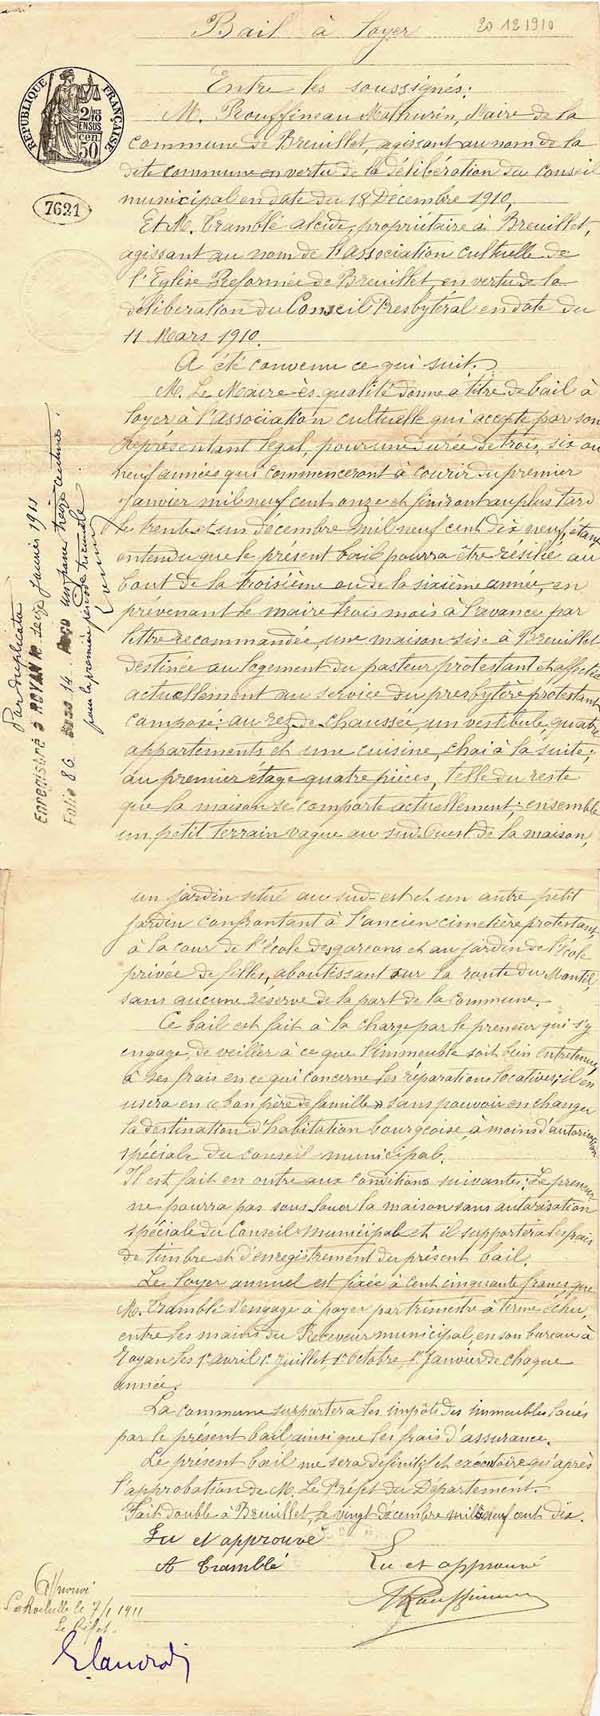 Bail à Loyer
20 12 1910
RÉPUBLIQUE FRANÇAISE
2/10 EN SUS
50 cen
7621
Entre les soussignés:
M. Rouffineau Mathurin, Maire de la
commune de Breuillet, agissant au nom de la
dite commune en vertu de la délibération du conseil
municipal en date du 18 Décembre 1910,
Et M. Tramblé Alcide, propriétaire à Breuillet,
agissant au nom de l'association cultuelle de
l'Eglise Réformée de Breuillet, en vertu de la
délibération du Conseil Presbytéral en date du
11 Mars 1910.
A été convenu ce qui suit.
M. Le Maire ès qualité donne à titre de bail à
loyer à l'association cultuelle qui accepte par son
représentant légal, pour une durée de trois, six ou
neuf années qui commenceront à courir du premier
janvier mil neuf cent onze et finiront au plus tard
le trente et un décembre mil neuf cent dix neuf, étant
entendu que le présent bail pourra être résilié au
bout de la troisième ou de la sixième année, en
prévenant le maire trois mois à l'avance par
lettre recommandée, une maison sise à Breuillet
destinée au logement du pasteur protestant et affectée
actuellement au service du presbytère protestant
composé: au rez de chaussée, un vestibule, quatre
appartements et une cuisine, chai à la suite;
au premier étage quatre pièces, telle du reste
que la maison se comporte actuellement; ensemble
un petit terrain vague au sud-Ouest de la maison,
Par duplicata
Enregistré à ROYAN le seize Janvier 1911
Folio 86 Case 14 Reçu un franc treize centimes
pour la première période triennale
un jardin situé au sud-est et un autre petit
jardin confrontant à l'ancien cimetière protestant
à la cour de l'école des garçons et au jardin de l'école
privée de filles, aboutissant sur la route du Montil,
sans aucune réserve de la part de la commune.
Ce bail est fait à la charge par le preneur qui s'y
engage, de veiller à ce que l'immeuble soit bien entretenu
à ses frais en ce qui concerne les réparations locatives; il en
usera en « bon père de famille » sans pouvoir en changer
la destination d'habitation bourgeoise, à moins d'autorisation
spéciale du conseil municipal.
Il est fait en outre aux conditions suivantes: Le preneur
ne pourra pas sous-louer la maison sans autorisation
spéciale du Conseil Municipal et il supportera les frais
de timbre et d'enregistrement du présent bail.
Le loyer annuel est fixée à cent cinquante francs que
M. Tramblé s'engage à payer par trimestre à terme échu,
entre les mains du Receveur municipal, en son bureau à
Royan les 1er avril 1er Juillet, 1er Octobre, 1er Janvier de chaque
année.
La commune supportera les impôts des immeubles loués
par le présent bail ainsi que les frais d'assurance.
Le présent bail ne sera définitif et exécutoire qu'après
l'approbation de M. Le Préfet du Département.
Fait double à Breuillet, le vingt décembre mil neuf cent dix.
Lu et approuvé
A Tramblé
Lu et approuvé
Rouffineau
Approuvé
La Rochelle le 7/1 1911
Le Préfet